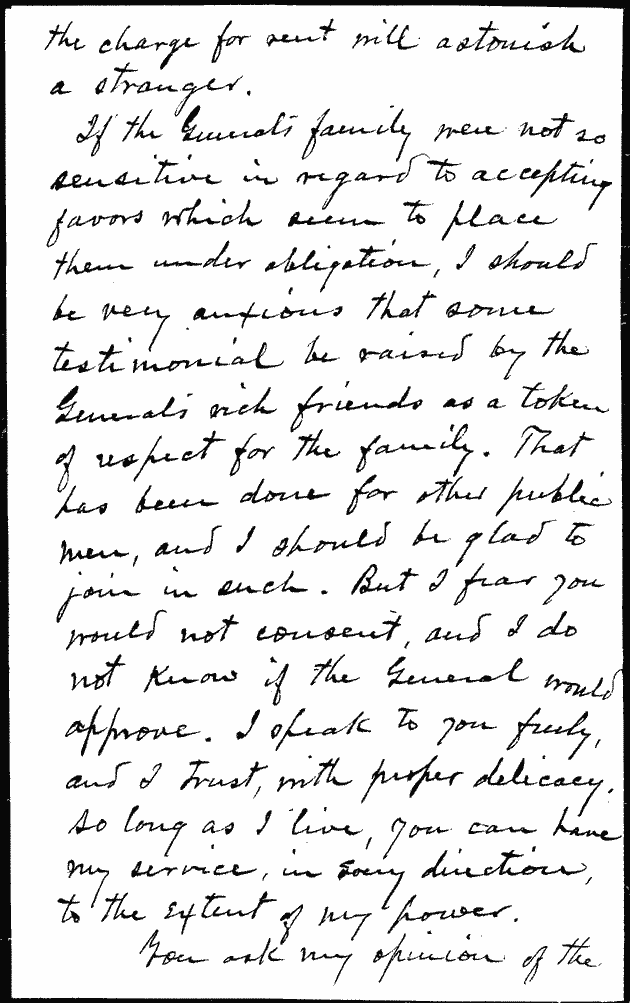 the charge for rent will astonish
a stranger.
If the General's family were not so
sensitive in regard to accepting
favors which seem to place
them under obligation, I should
be very anxious that some
testimonial be raised by the
General's rich friends as a token
of respect for the family. That
has been done for other public
men, and I should be glad to
join in such. But I fear you
would not consent, and I do
not know if the General would
approve. I speak to you freely,
and I trust, with proper delicacy.
So long as I live, you can have
my service, in any direction,
to the extent of my power.
You ask my opinion of the